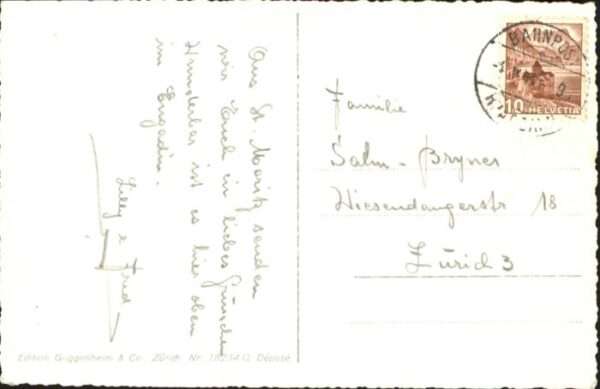 Aus St. Moritz senden
wir Euch ein liebes Grüsschen
Wunderbar ist es hier oben
im Engadin.
Lilly & Fred
Familie
Salm-Bryner
Wiesendangerstr 18
Zürich 3
BAHNPOS
10 HELVETIA
Edition Guggenheim & Co., Zürich Nr. Déposé